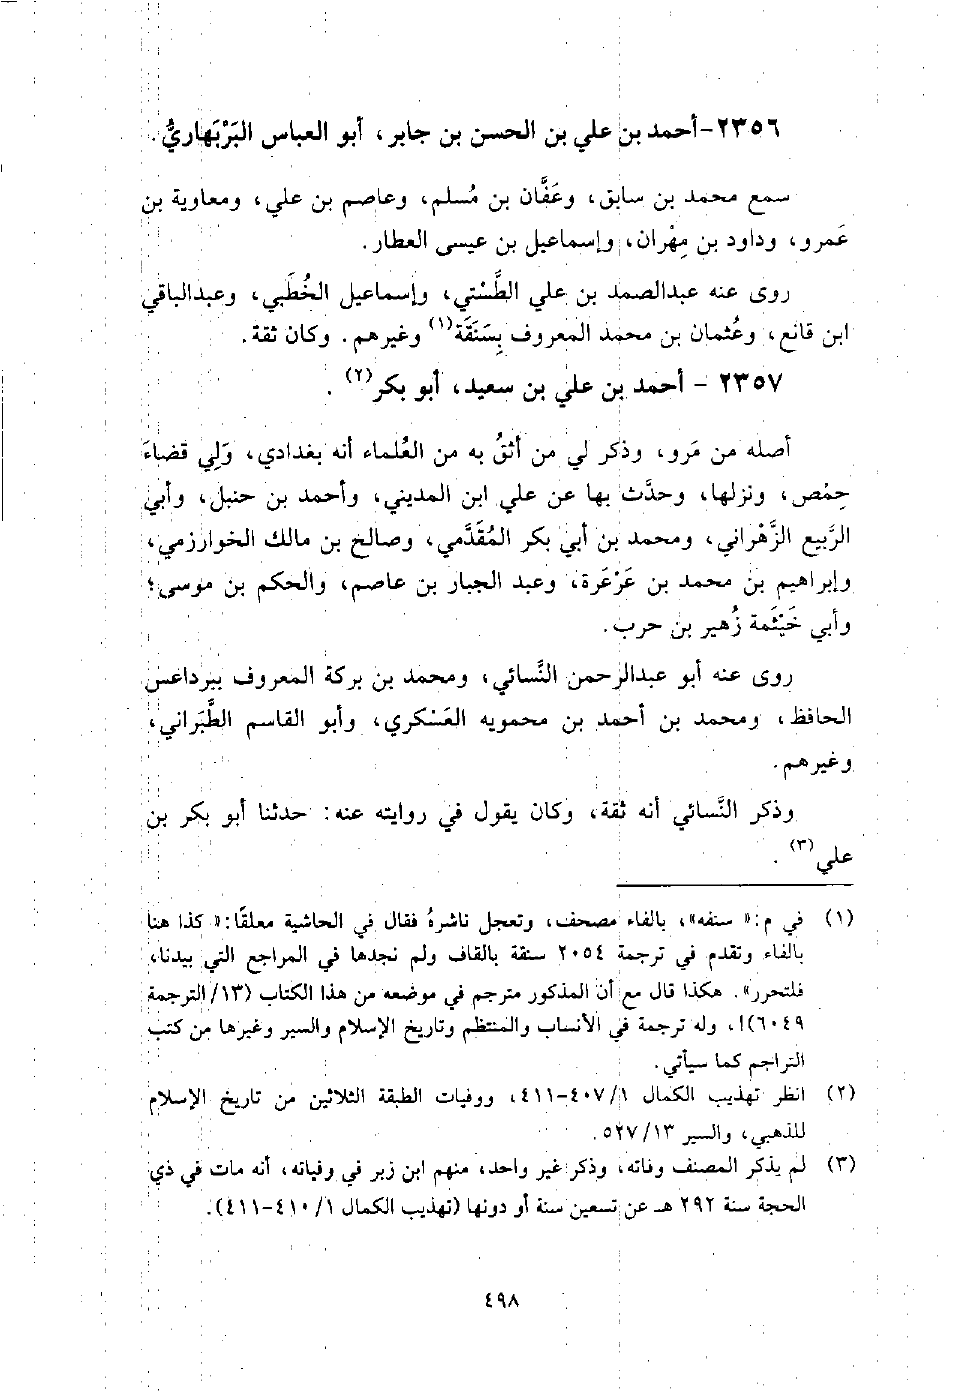 ٢٣٥٦-أحمد بن علي بن الحسن بن جابر، أبو العباس البَرْبَهاريُّ.
سمع محمد بن سابق، وعَفَّان بن مُسلم، وعاصم بن علي، ومعاوية بن
عَمرو، وداود بن مِهْران، وإسماعيل بن عيسى العطار.
روى عنه عبدالصمد بن علي الطَّسْتي، وإسماعيل الخُطَبي، وعبدالباقي
ابن قانع، وعُثمان بن محمد المعروف بِسَنَقَة(١) وغيرهم. وكان ثقة.
٢٣٥٧ - أحمد بن علي بن سعيد، أبو بكر(٢).
أصله من مَرو، وذكر لي من أثقُ به من العُلماء أنه بغدادي، وَلِي قضاءَ
حِمْص، ونزلها، وحدَّث بها عن علي ابن المديني، وأحمد بن حنبل، وأبي
الرَّبيع الزَّهْراني، ومحمد بن أبي بكر المُقَدَّمي، وصالح بن مالك الخوارزمي،
وإبراهيم بن محمد بن عَرْعَرة، وعبد الجبار بن عاصم، والحكم بن موسى؛
وأبي خَيْثَمة زُهير بن حرب.
روى عنه أبو عبدالرحمن النَّسائي، ومحمد بن بركة المعروف ببرداعس
الحافظ، ومحمد بن أحمد بن محمويه العَسْكري، وأبو القاسم الطَّبَراني،
وغيرهم.
وذكر النَّسائي أنه ثقة، وكان يقول في روايته عنه: حدثنا أبو بكر بن
علي(٣).
(١) في م:« سنفه»، بالفاء مصحف، وتعجل ناشرهُ فقال في الحاشية معلقًا:« كذا هنا
بالفاء وتقدم في ترجمة ٢٠٥٤ سنقة بالقاف ولم نجدها في المراجع التي بيدنا،
فلتحرر». هكذا قال مع أن المذكور مترجم في موضعه من هذا الكتاب (١٣/ الترجمة
٦٠٤٩)!، وله ترجمة في الأنساب والمنتظم وتاريخ الإسلام والسير وغيرها من كتب
التراجم كما سيأتي.
(٢) انظر تهذيب الكمال ١/ ٤٠٧-٤١١، ووفيات الطبقة الثلاثين من تاريخ الإسلام
للذهبي، والسير ١٣/ ٥٢٧.
(٣) لم يذكر المصنف وفاته، وذكر غير واحد، منهم ابن زبر في وفياته، أنه مات في ذي
الحجة سنة ٢٩٢ هـ عن تسعين سنة أو دونها (تهذيب الكمال ١/ ٤١٠-٤١١).
٤٩٨